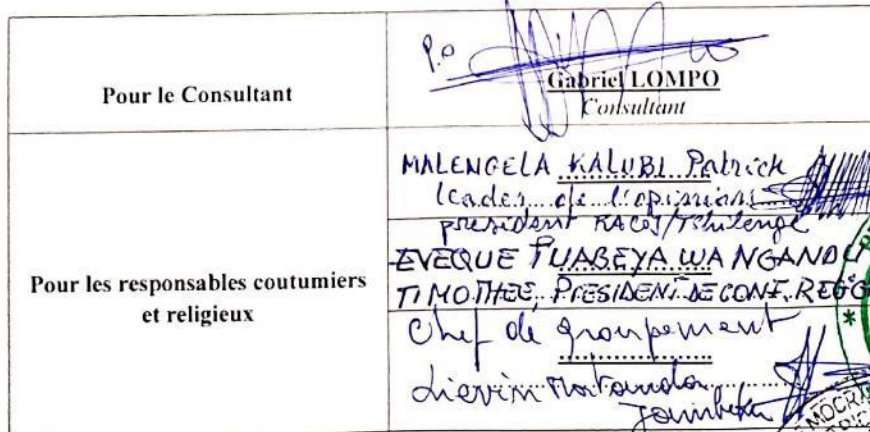 Pour le Consultant
P.O
Gabriel LOMPO
Consultant
Pour les responsables coutumiers
et religieux
MALENGELA KALUBI Patrick
leader de l'opinion
président RACOJ/Tshilenge
EVEQUE TUABEYA WA NGANDU
TIMOTHEE, PRESIDENT DE CONF. REGO
Chef de groupement
Lievin